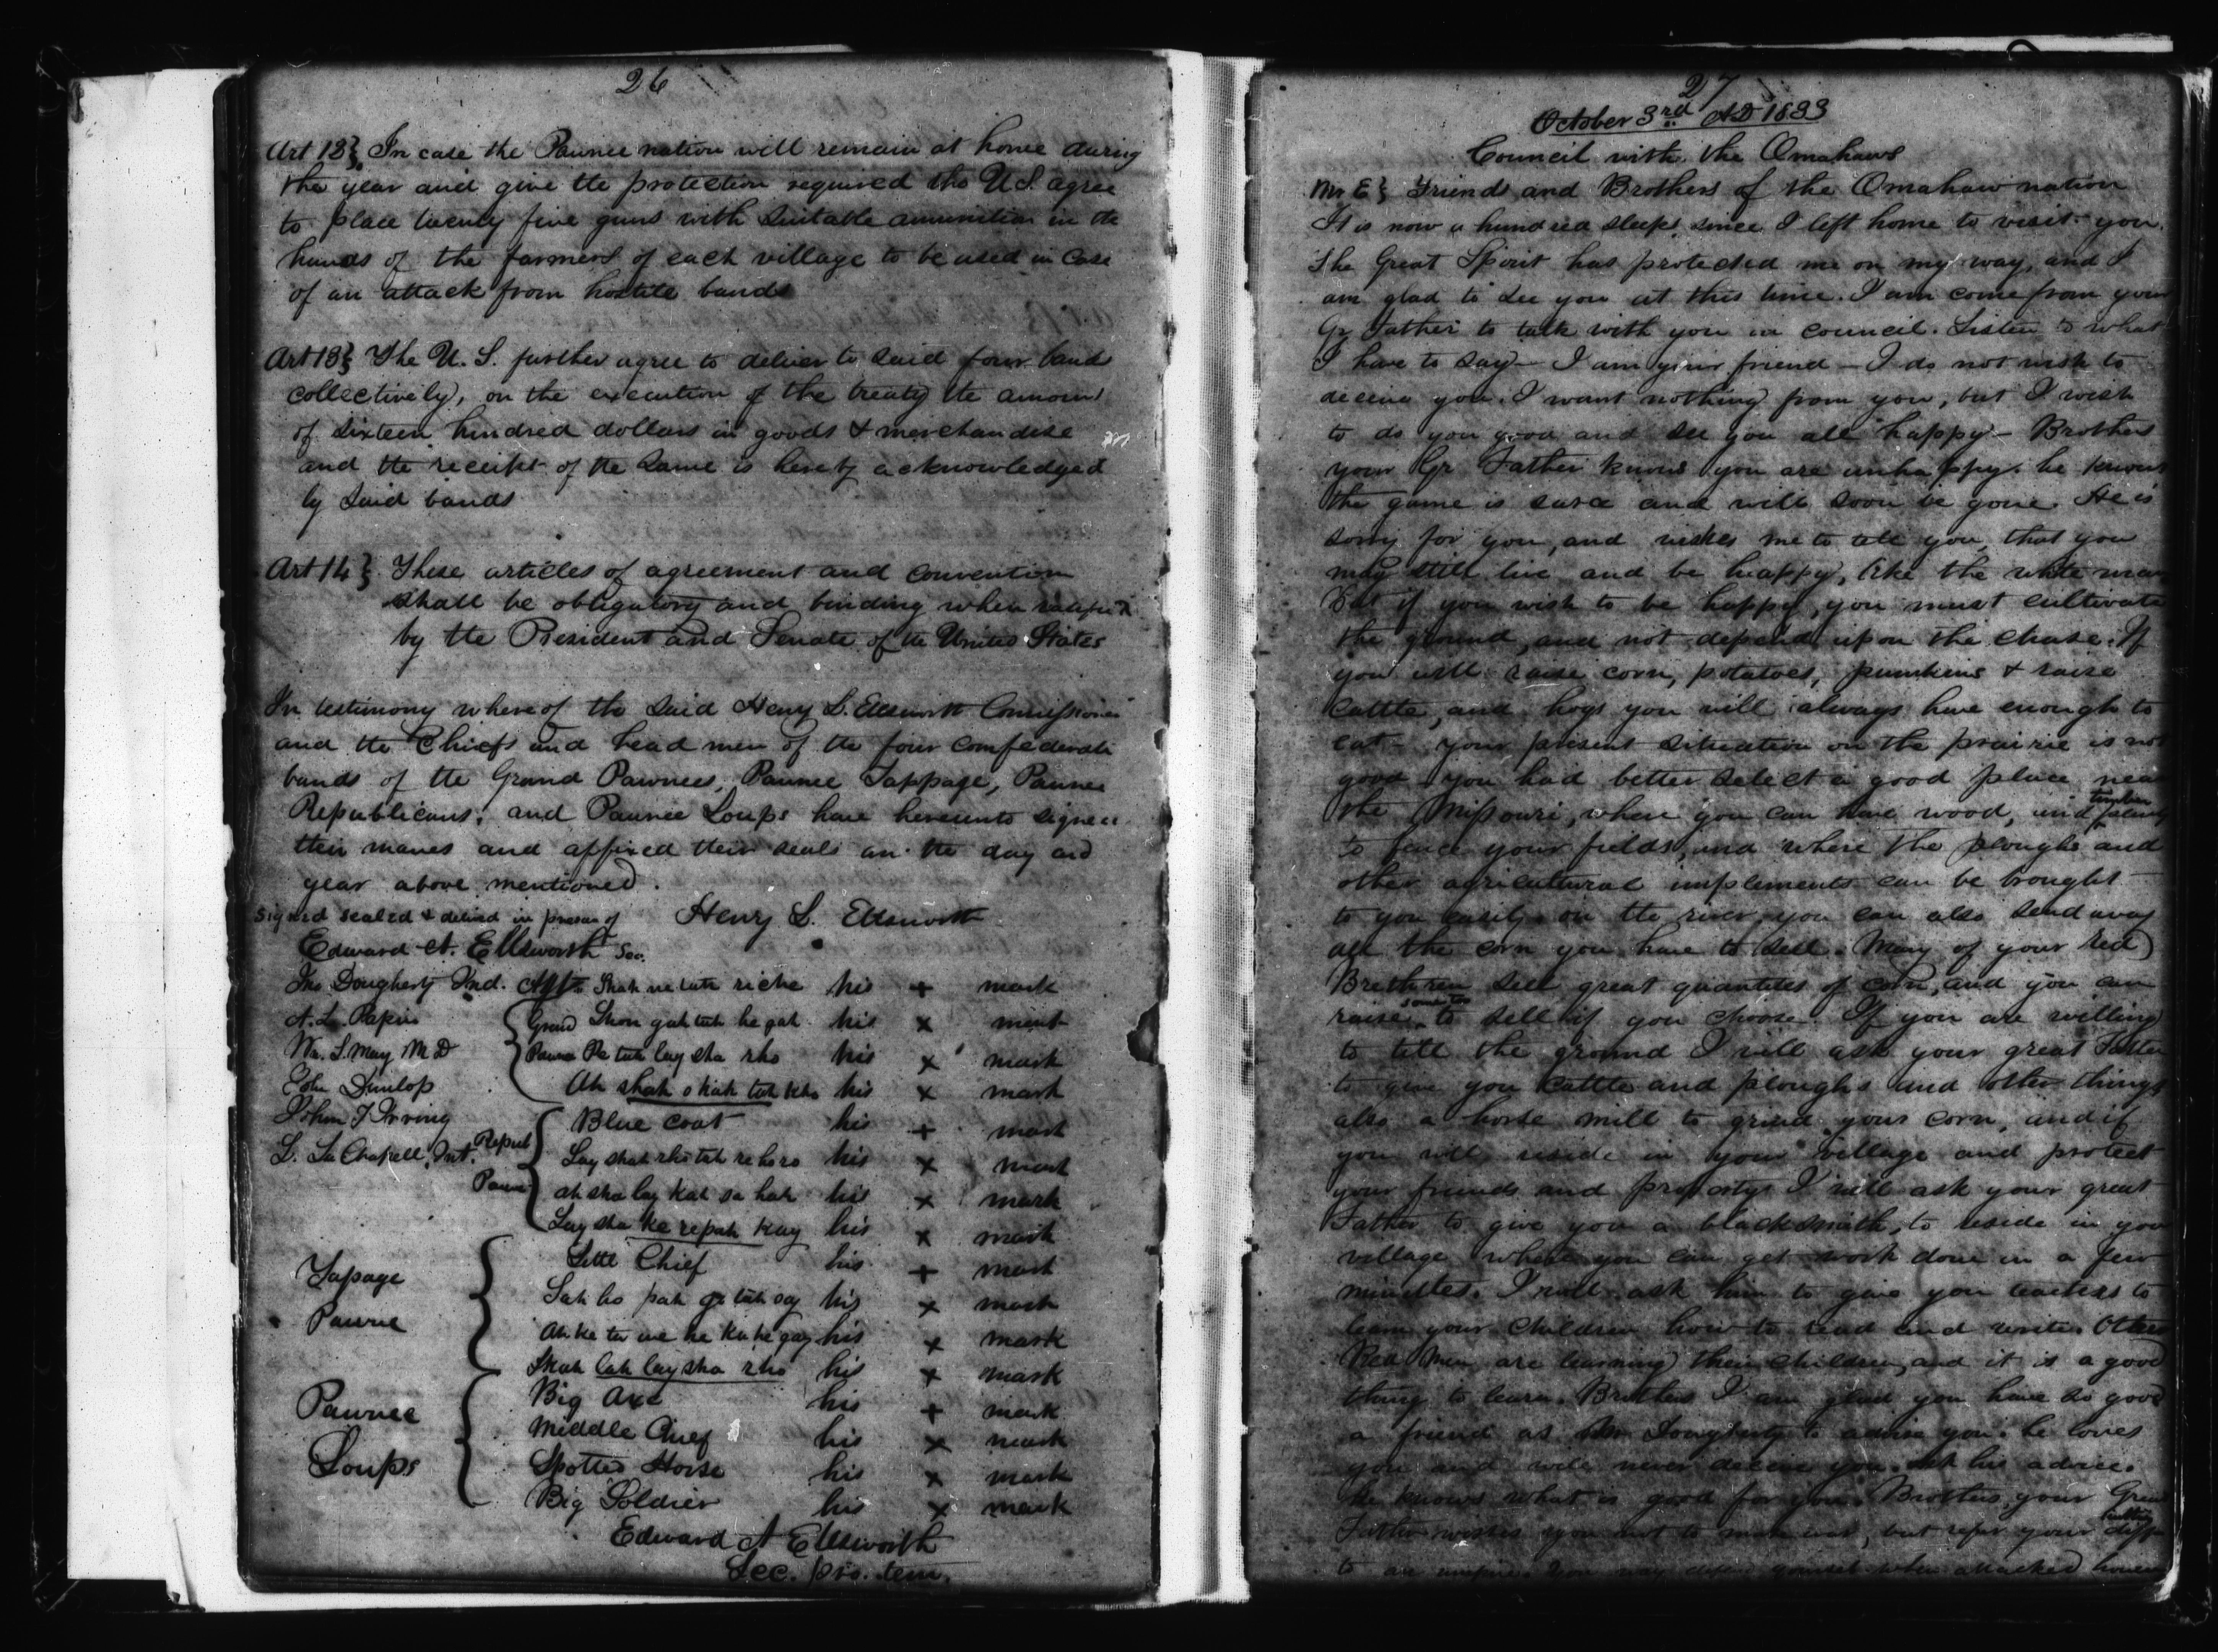 26
Art 13} In case the Pawnee nation will remain at home during
the year and give the protection required the U.S. agree
to place twenty five guns with suitable ammunition in the
hands of the farmers of each village to be used in case
of an attack from hostile bands
Art 13} The U. S. further agree to deliver to said four bands
collectively, on the execution of the treaty the amount
of sixteen hundred dollars in goods & merchandise
and the receipt of the same is hereby acknowledged
by said bands
Art 14} These articles of agreement and convention
shall be obligatory and binding when ratified
by the President and Senate of the United States
In testimony whereof the said Henry L. Ellsworth Commissioner
and the Chiefs and head men of the four confederate
bands of the Grand Pawnees, Pawnee Tappage, Pawnee
Republicans, and Pawnee Loups have hereunto signed
their manes and affixed their seals on the day and
year above mentioned.
Signed sealed & delivd in presen of Henry L. Ellsworth
Edward A. Ellsworth Sec.
Jno Dougherty Ind. Agt. Shah re late riche his + mark
A. L. Papin { Grand Shon gah tah he gah his x mark
Wm. S. May M D Pawne Pe tah lay sha rho his x mark
John Dunlop Ah shah o kah tah kho his x mark
John T Irving { Blue Coat his + mark
L. La Chapell, Int. Repub Lay shah rho tah re hoso his x mark
Pawne ah sha lay kah sa hah his x mark
Lay sha ke re pah kay his x mark
{ Little Chief his + mark
Tapage Lah ho pah go tah say his x mark
Pawne Ah ke ta we he ka he gay his x mark
Skah lah lay sha rho his x mark
{ Big Axe his + mark
Pawnee Middle Chief his x mark
Loups Spotted Horse his x mark
Big Soldier his x mark
Edward A Ellsworth
Sec. pro. tem.
27
October 3rd AD 1833
Council with the Omahaws
Mr E} Friends and Brothers of the Omahaw nation
It is now a hundred sleeps since I left home to visit you.
The Great Spirit has protected me on my way, and I
am glad to see you at this time. I am come from your
Gr Father to talk with you in council. Listen to what
I have to say - I am your friend - I do not wish to
deceive you. I want nothing from you, but I wish
to do you good and see you all happy - Brothers
your Gr Father knows you are unhappy. he knows
the game is scarce and will soon be gone. He is
sorry for you, and wishes me to tell you, that you
may still live and be happy, like the white man
But if you wish to be happy, you must cultivate
the ground, and not depend upon the chase. If
you will raise corn, potatoes, pumkins & raise
Cattle, and hogs you will always have enough to
eat - your present situation on the prairie is not
good you had better select a good place near
the Missouri, where you can have wood, and timber plenty
to fence your fields, and where the ploughs and
other agricultural implements can be brought
to you easily. on the river, you can also send away
all the corn you have to sell. Many of your Red
Brethren sell great quantites of corn, and you can
raise some too to sell if you choose. If you are willing
to till the ground I will ask your great Father
to give you Cattle and ploughs and other things
also a horse mill to grind your corn, and if
you will reside in your village and protect
your friends and property I will ask your great
Father to give you a blacksmith, to reside in your
village where you can get work done in a few
minutes. I will ask him to give you teachers to
learn your children how to read and write. Other
Red Men are learning their children, and it is a good
thing to learn. Brothers I am glad you have so good
a friend as Mr Dougherty to advise you. he loves
you and will never deceive you. ask his advice.
He knows what is good for you. Brothers, your Great
Father wishes you not to make war, but refer your
to an umpire. You may defend yourself when attacked